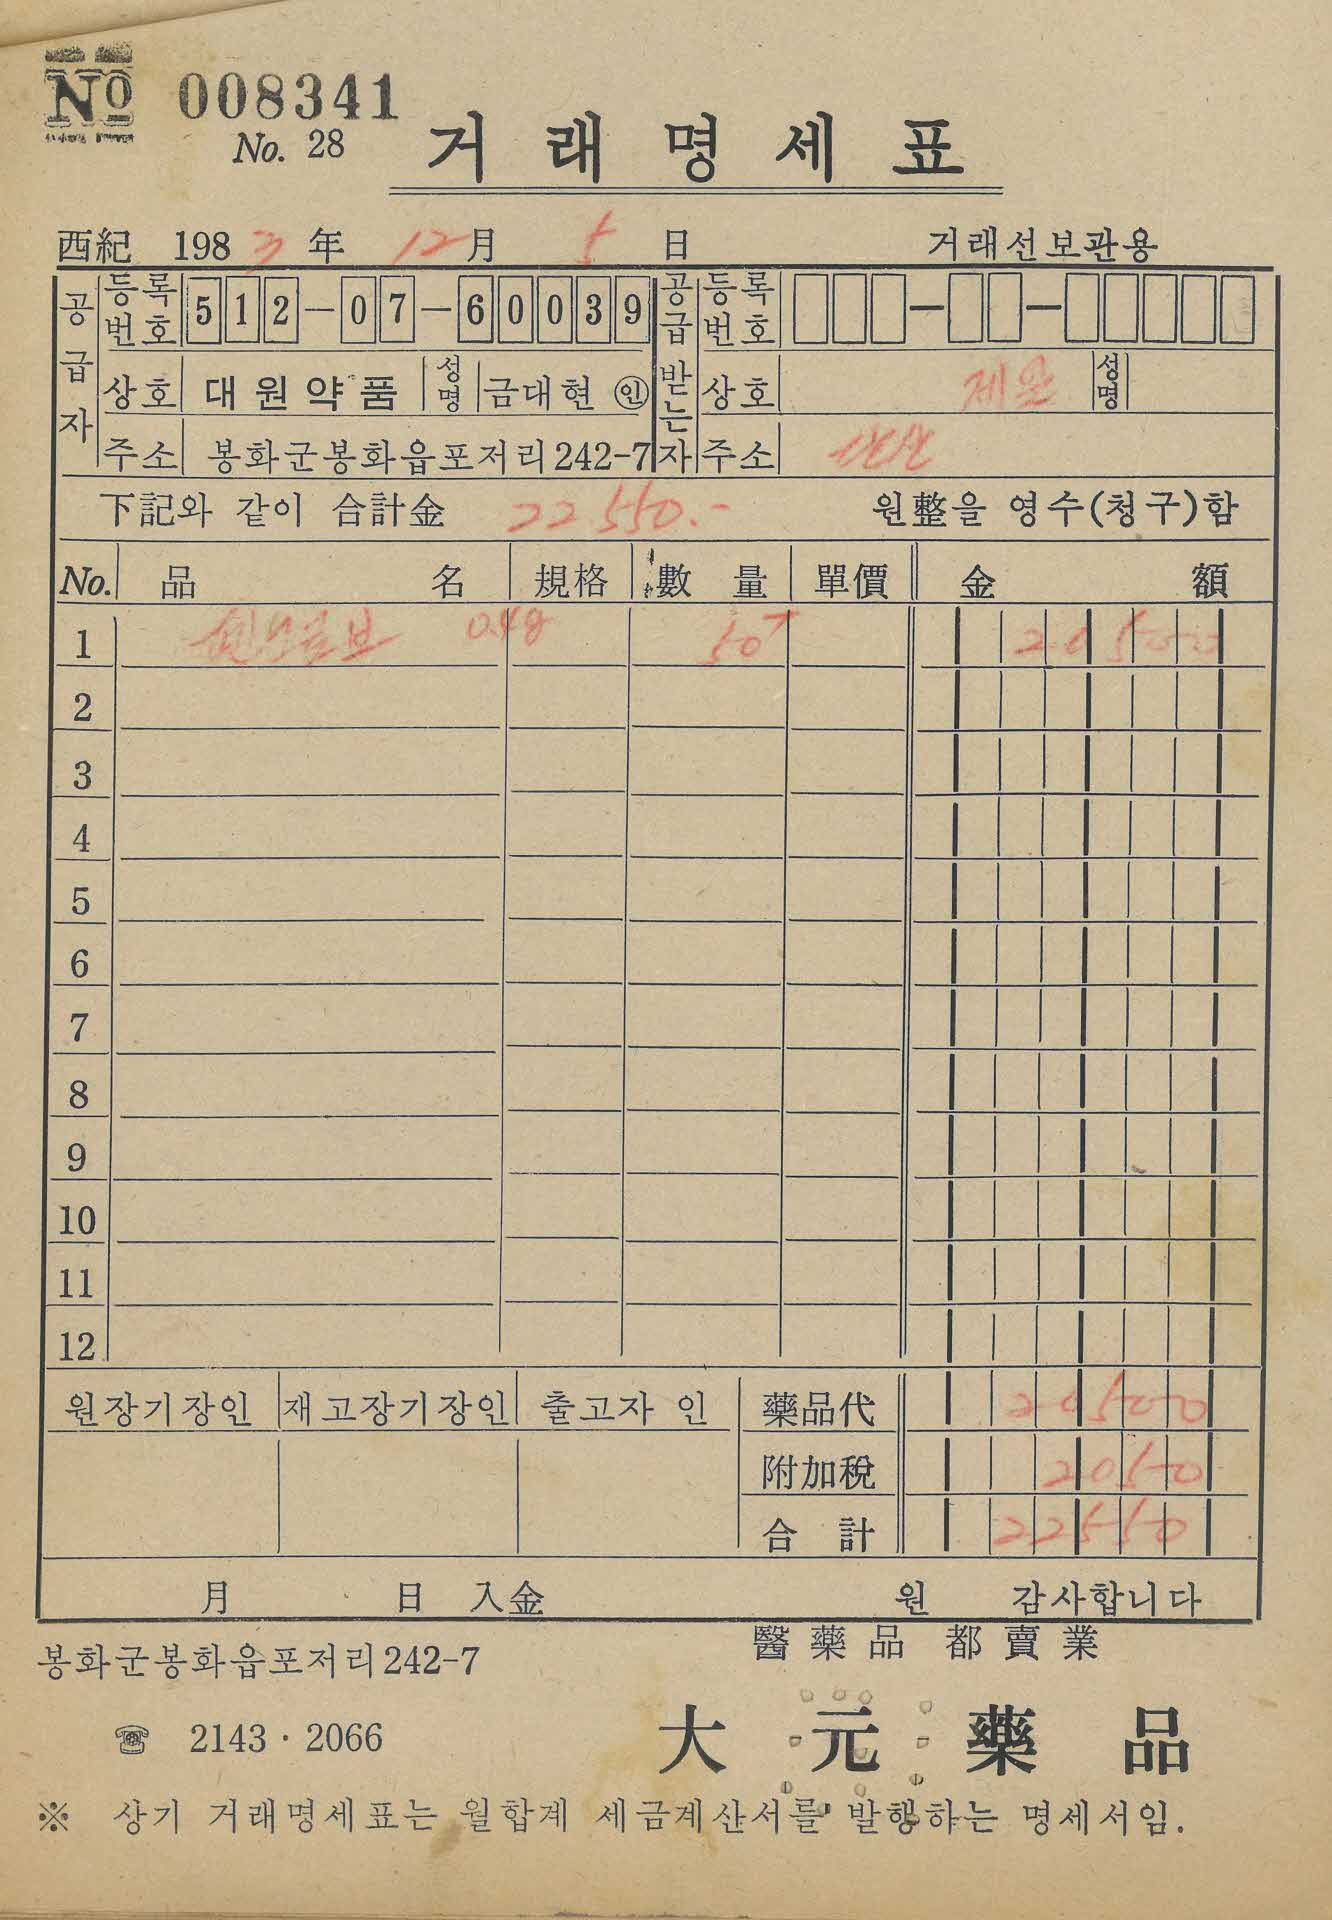 No 008341
No. 28
거래명세표
西紀 1983年 12月 5日 거래선보관용
공급자 등록번호 512-07-60039 공급받는자 등록번호
상호 대원약품 성명 금대현 ㊞ 상호 성명
주소 봉화군봉화읍포저리242-7 주소
下記와 같이 合計金 22550.- 원整을 영수(청구)함
No. 品名 規格 數量 單價 金額
1 0.48 50 20500
2
3
4
5
6
7
8
9
10
11
12
원장기장인 재고장기장인 출고자 인 藥品代 20500
附加稅 2050
合計 22550
月 日 入金 원 감사합니다
봉화군봉화읍포저리242-7 醫藥品 都賣業
☎ 2143·2066 大元藥品
※ 상기 거래명세표는 월합계 세금계산서를 발행하는 명세서임.